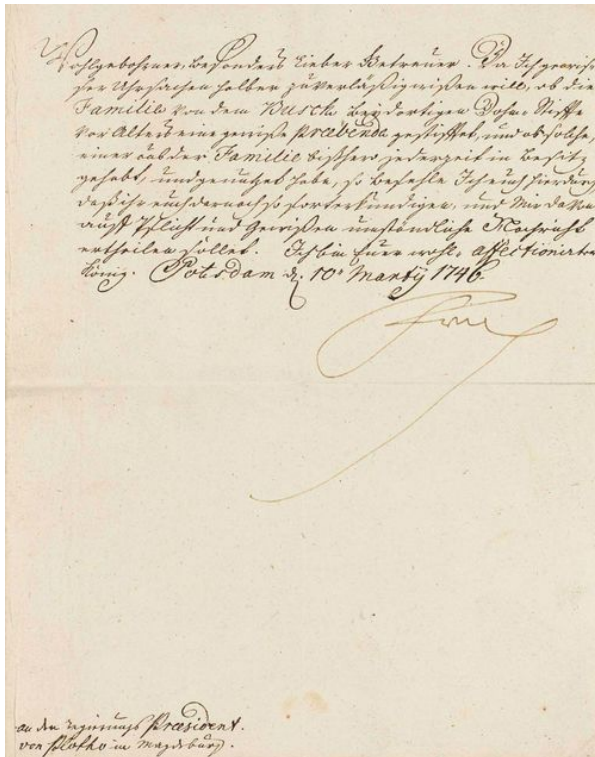 Wohlgebohrner, besonders lieber Getreuer. Da Ich gewiß
ser Uhrsachen halber zuverläßig wißen will, ob die
Familie von dem Busch bey dortigen Dohm-Stiffte
vor Alters eine gewiße Præbende gestifftet, und ob solche,
einer aus der Familie bißhero jederzeit in Besitz
gehabt, und genutzet habe, so befehle Ich euch hierdurch
daß ihr euch darnach so fort erkundigen, und Mir davon
auf Pflicht und Gewißen umständliche Nachricht
ertheilen sollet. Ich bin Euer wohl affectionirter
König. Potsdam d. 10t Martij 1746
an den regierungs Præsident.
von Plotho in Magdeburg.